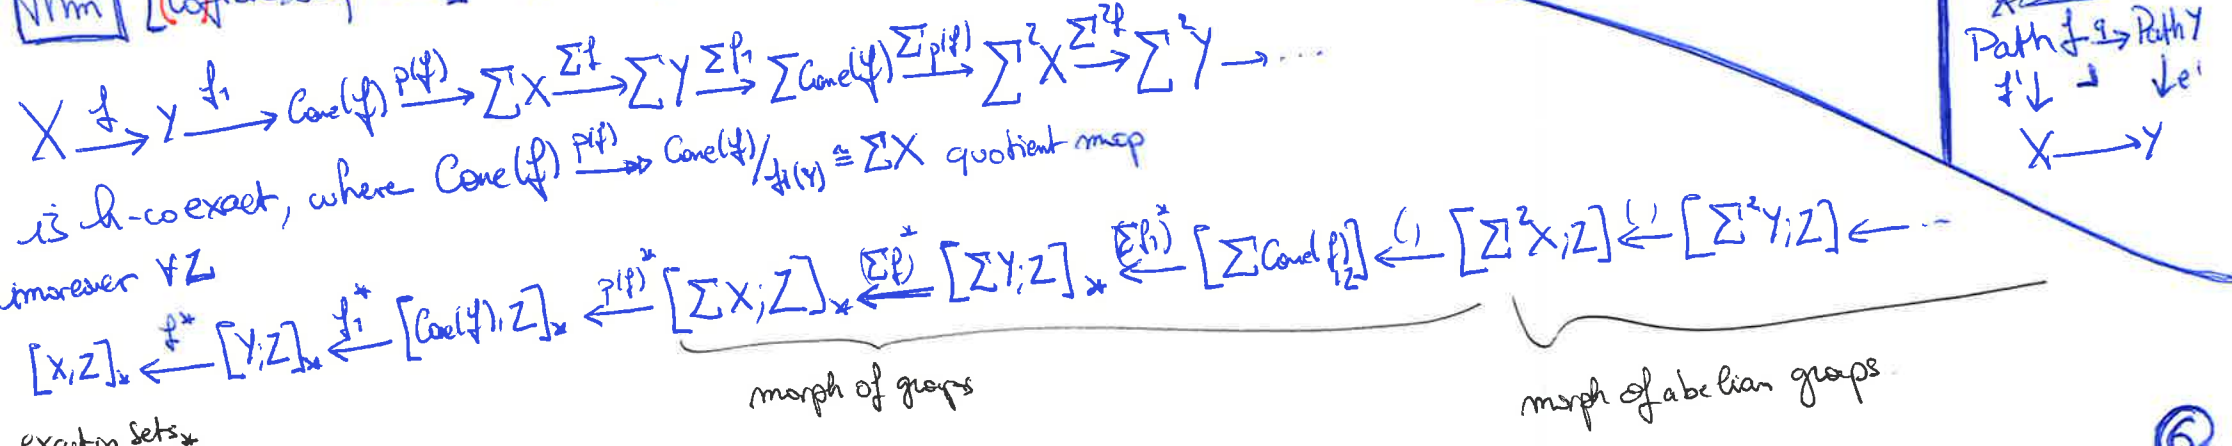 Thm
X →f Y →f₁ Cone(f) →p(f) ΣX →Σf ΣY →Σf₁ ΣCone(f) →Σp(f) Σ²X →Σ²f Σ²Y → ...
is h-coexact, where Cone(f) →p(f) Cone(f)/f₁(Y) ≅ ΣX quotient map
moreover ∀Z
[X,Z]* ←f* [Y;Z]* ←f₁* [Cone(f),Z]* ←p(f)* [ΣX;Z]* ←(Σf)* [ΣY;Z]* ←(Σf₁)* [ΣCone(f),Z] ←( ) [Σ²X;Z] ←( ) [Σ²Y;Z] ← ...
morph of groups
morph of abelian groups
exact in Sets*
Path f →q Path Y
f' ↓ ⌟ ↓ e'
X → Y
6